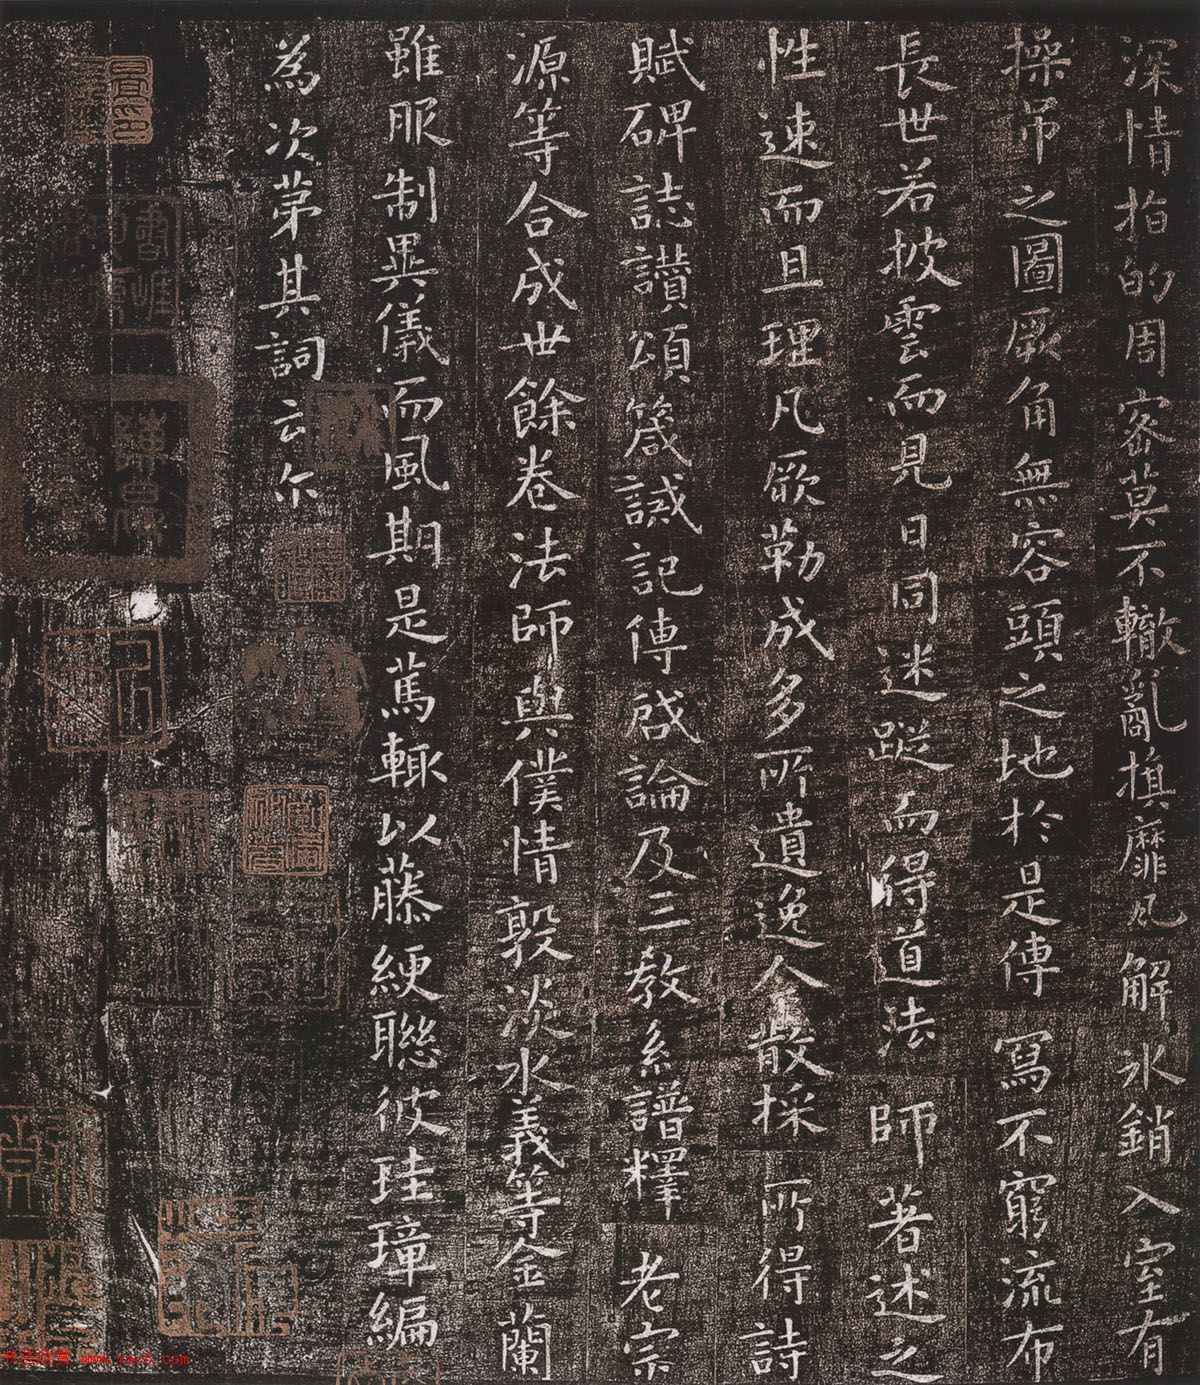 深情指的周密莫不轍亂旗靡凡解氷銷入室有
操吊之圖厥角無容頭之地於是傳寫不窮流布
長世若披雲而見日同迷蹤而得道法師著述之
性速而且理凡厥勒成多所遺逸今散採所得詩
賦碑誌讚頌箴誡記傳啟論及三教系譜釋老宗
源等合成世餘卷法師與僕情敦淡水義等金蘭
雖服制異儀而風期是篤輙以藤綆聮彼珪璋編
為次苐其詞云尒
书法欣赏 www.yac8.com